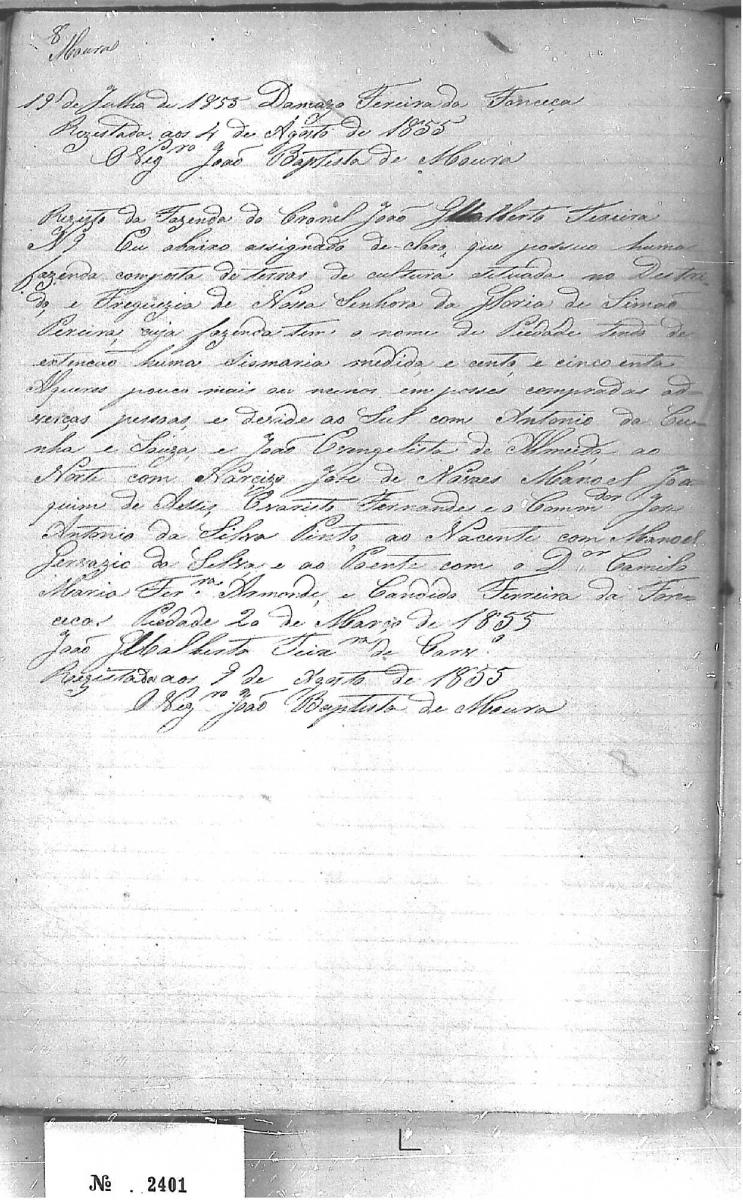 8
Moura
19 de Julho de 1855 Damazo Fereira da Fonceca
Rezistada aos 4 de Agosto de 1855
O Vig.ro João Baptista de Moura
Rezisto da Fazenda do Cronel João Gualberto Teixeira
Nº Eu abaixo assignado de-claro, que possuo huma
fazenda composta de terras de cultura situada no Destri-
do, e Freguezia de Nossa Senhora da Gloria de Simão
Pereira, cuja fazenda tem o nome de Piedade tendo de
extencão huma Sismaria medida e cento, e cincoenta
Alqueres pouco mais ou menos, em posses compradas ad-
verças pessoas, e devide ao Sul com Antonio da Cu-
nha e Souza, e João Evangelista de Almeida, ao
Norte com Narcizo Joze de Novaes Manoel Joa-
quim de Assiz Evaristo Fernandes e o Comm.dor Joze
Antonio da Silva Pinto, ao Nacente com Manoel
Gervazio da Selva e ao Poente com o D.or Camilo
Maria Fer.ra Armonde, e Candido Ferreira da Fon-
ceca Piedade 20 de Março de 1855
João Gualberto Teix.ra de Carv.o
Rezistada aos 9 de Agosto de 1855
O Vig.ro João Baptista de Moura
8
№ . 2401